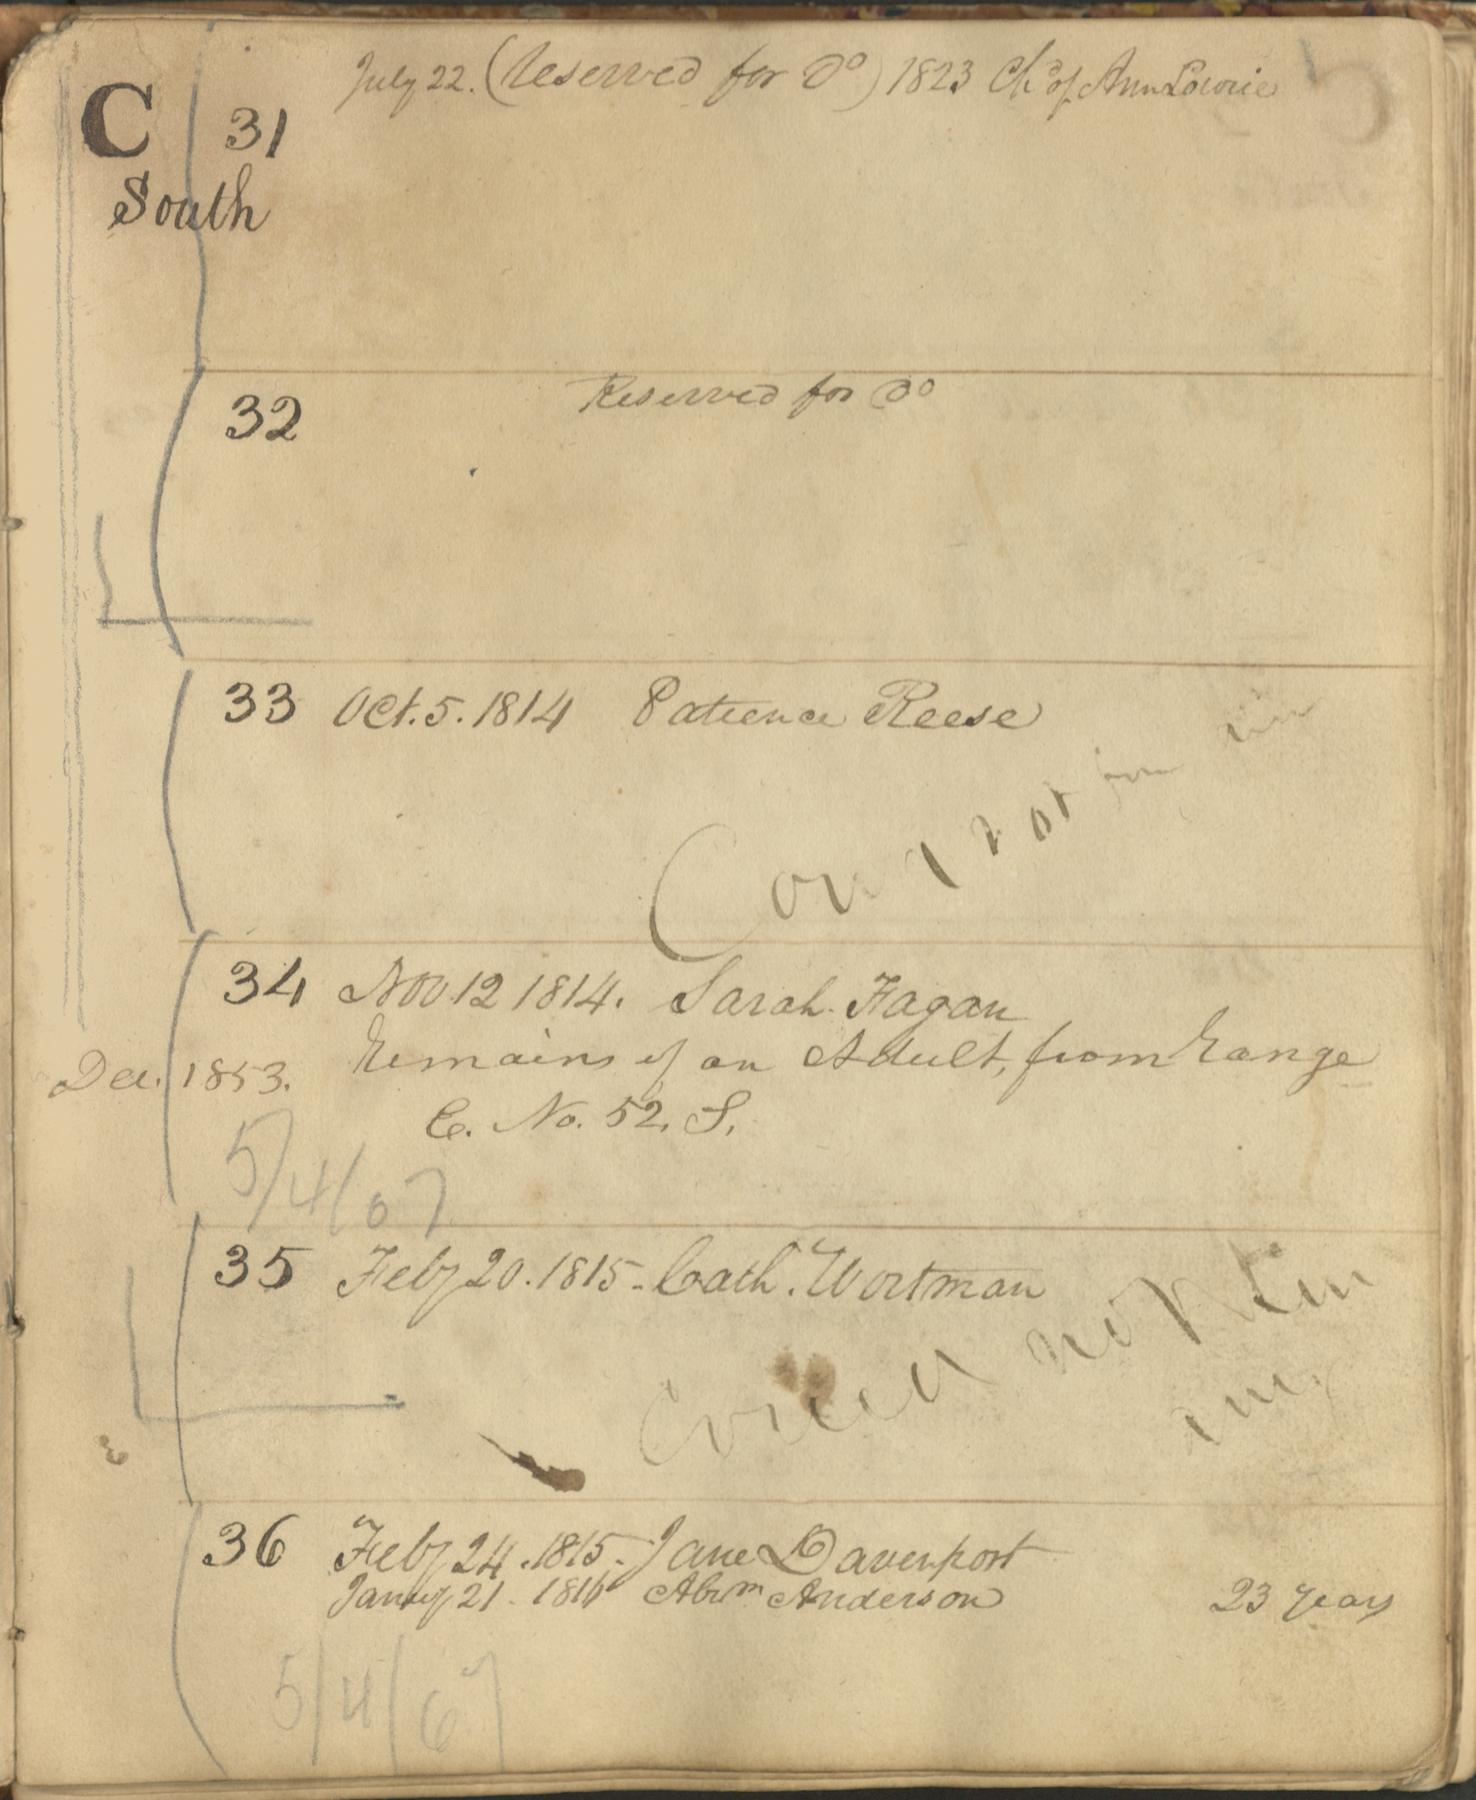 July 22. (Reserved for Do) 1823 Chd. of Ann Lowrie
C 31
South
32 Reserved for Do
33 Oct. 5. 1814 Patience Reese
34 Nov 12 1814. Sarah Fagan
Dec. 1853. Remains of an Adult, from Range
C. No. 52. S.
5/4/67
35 Feby 20. 1815 - Cath. Wortman
could not
36 Feby 24. 1815 - Jane Davenport
Jany 21. 1816 Abrm Anderson 23 years
5/4/67